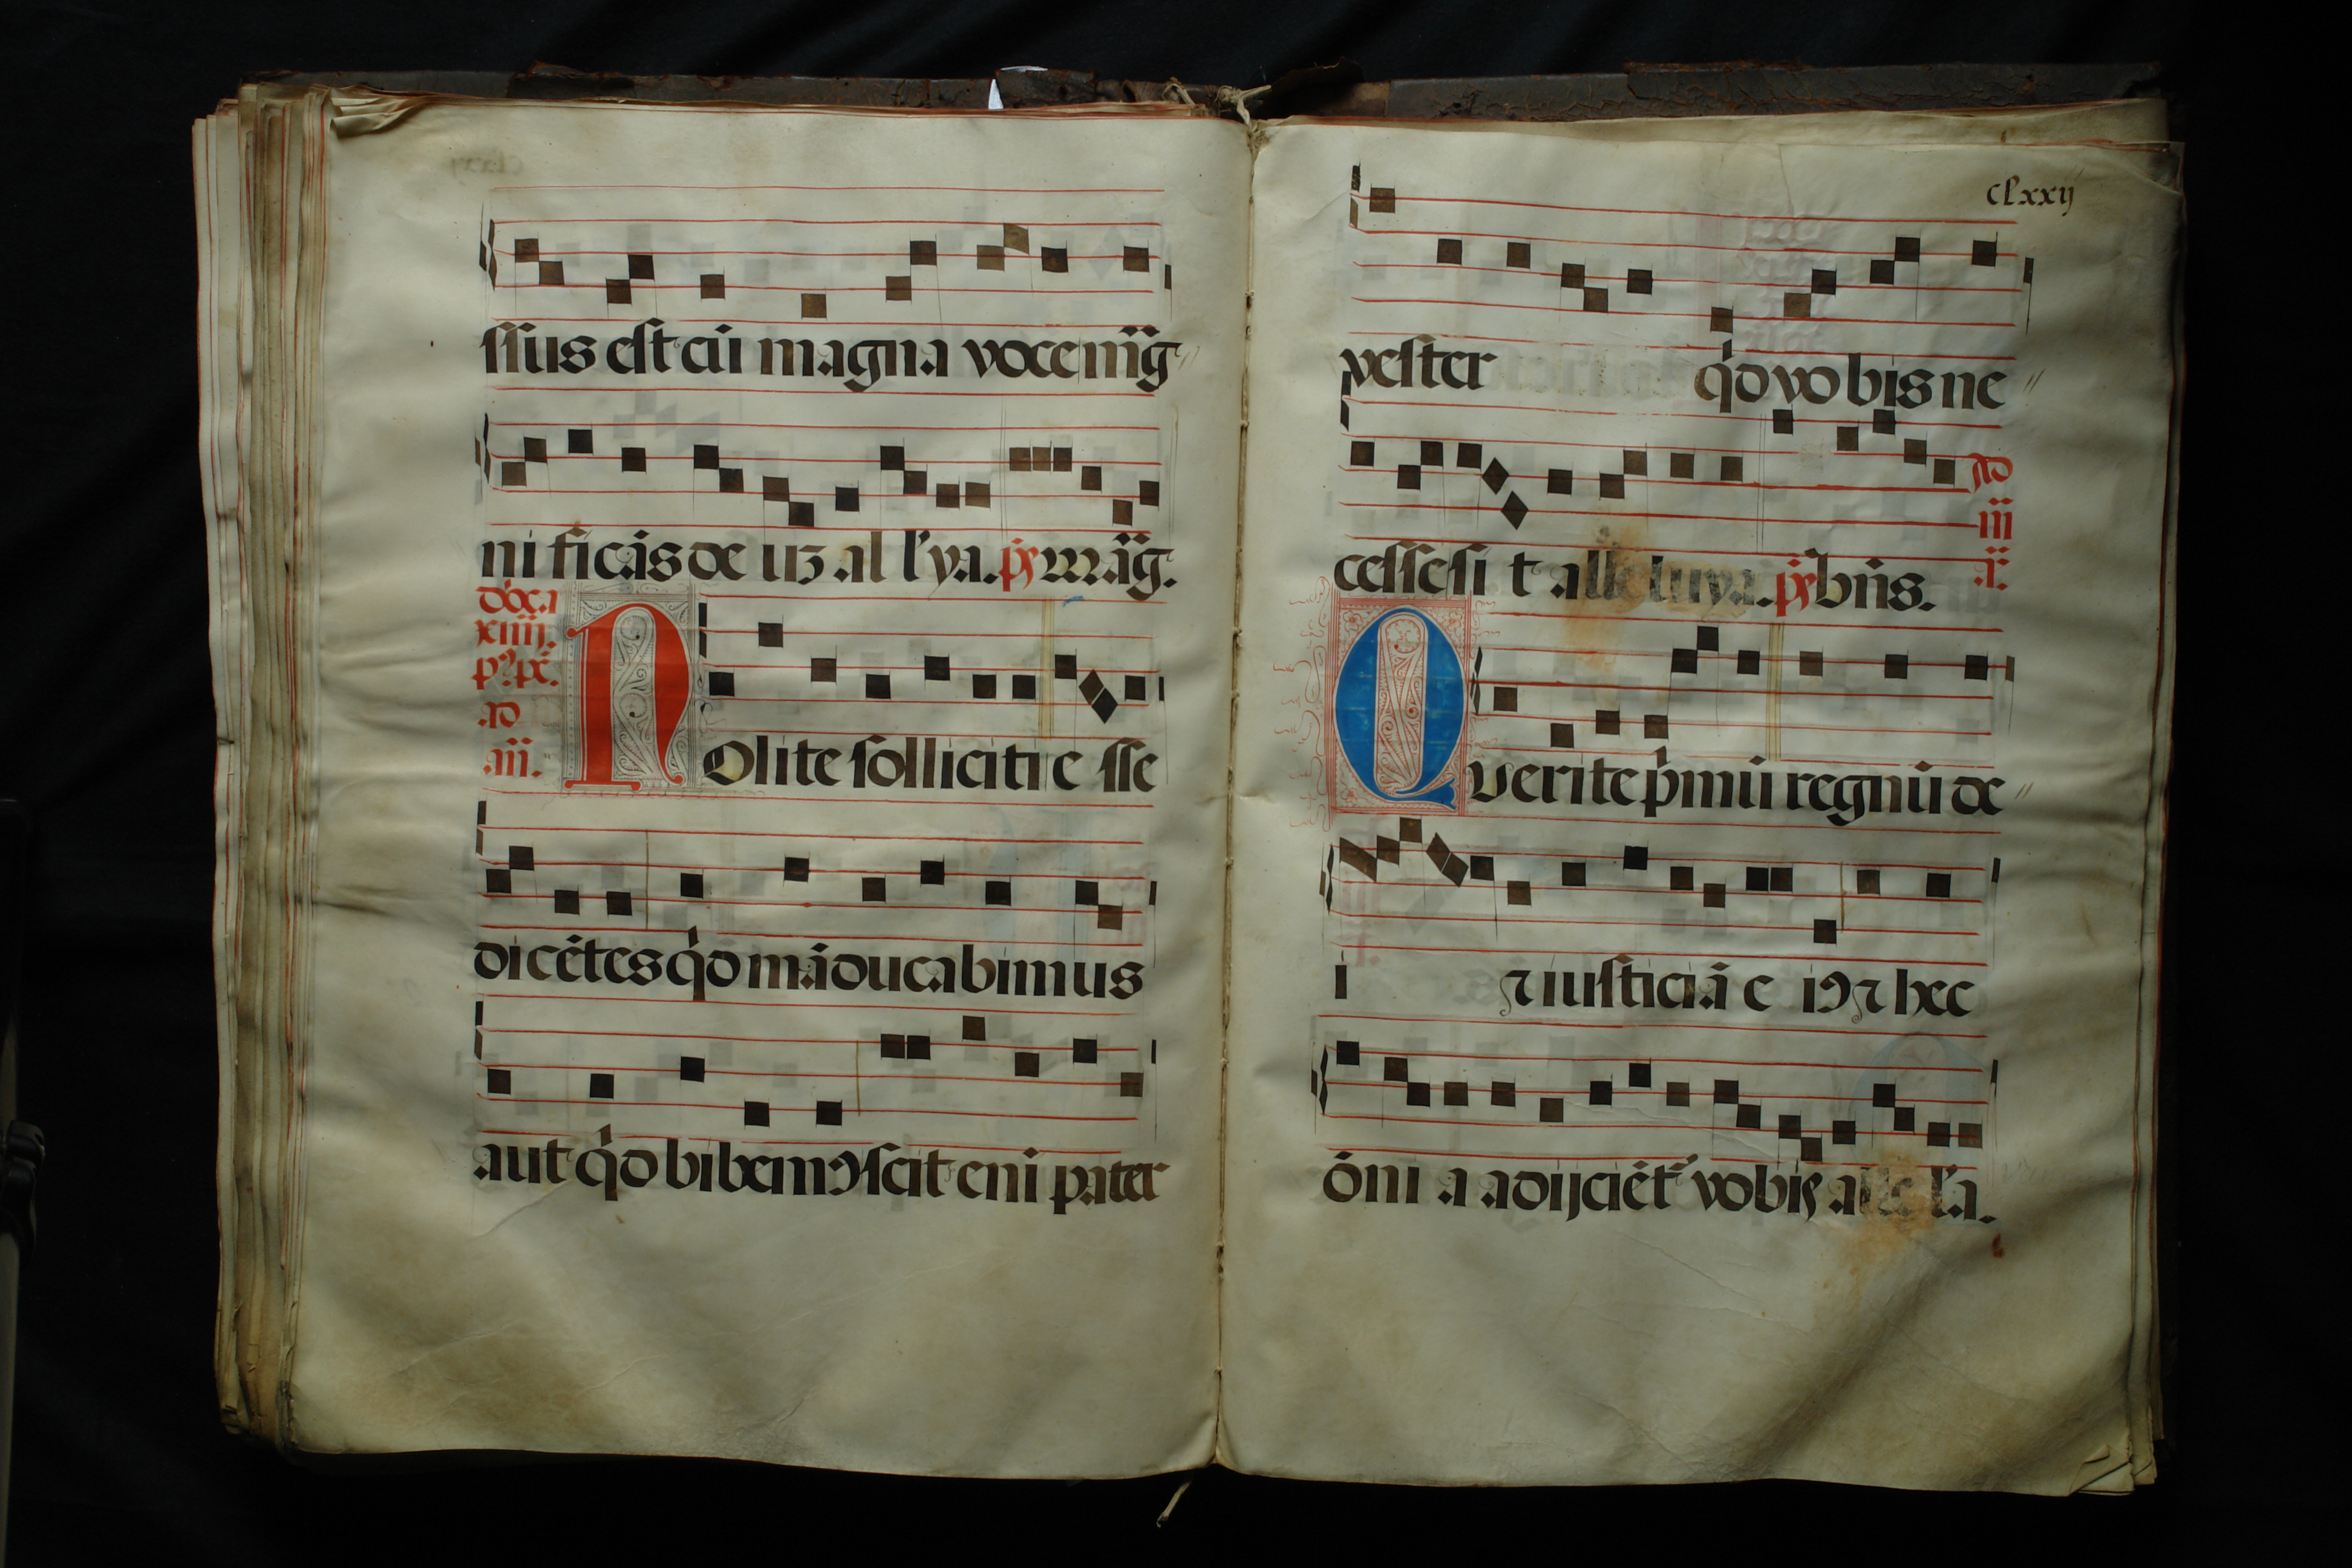 ssus est cū magna voce māg
ni ficās de uʒ al l'ya. ps māg.
dōca
xiiij.
pꝰ pē.
ad
mā.
NOlite solliciti e sse
dicētes qd māducabimus
aut qd bibemꝰ scit eni pater
clxxij
vester qd vobis ne
cesse si t alleluya. ps bn̄s.
ad
iii
a.
Querite pmū regnū de
i ⁊ iusticiā e iꝰ ⁊ hec
ōni a adijciēt' vobis alle l'a.